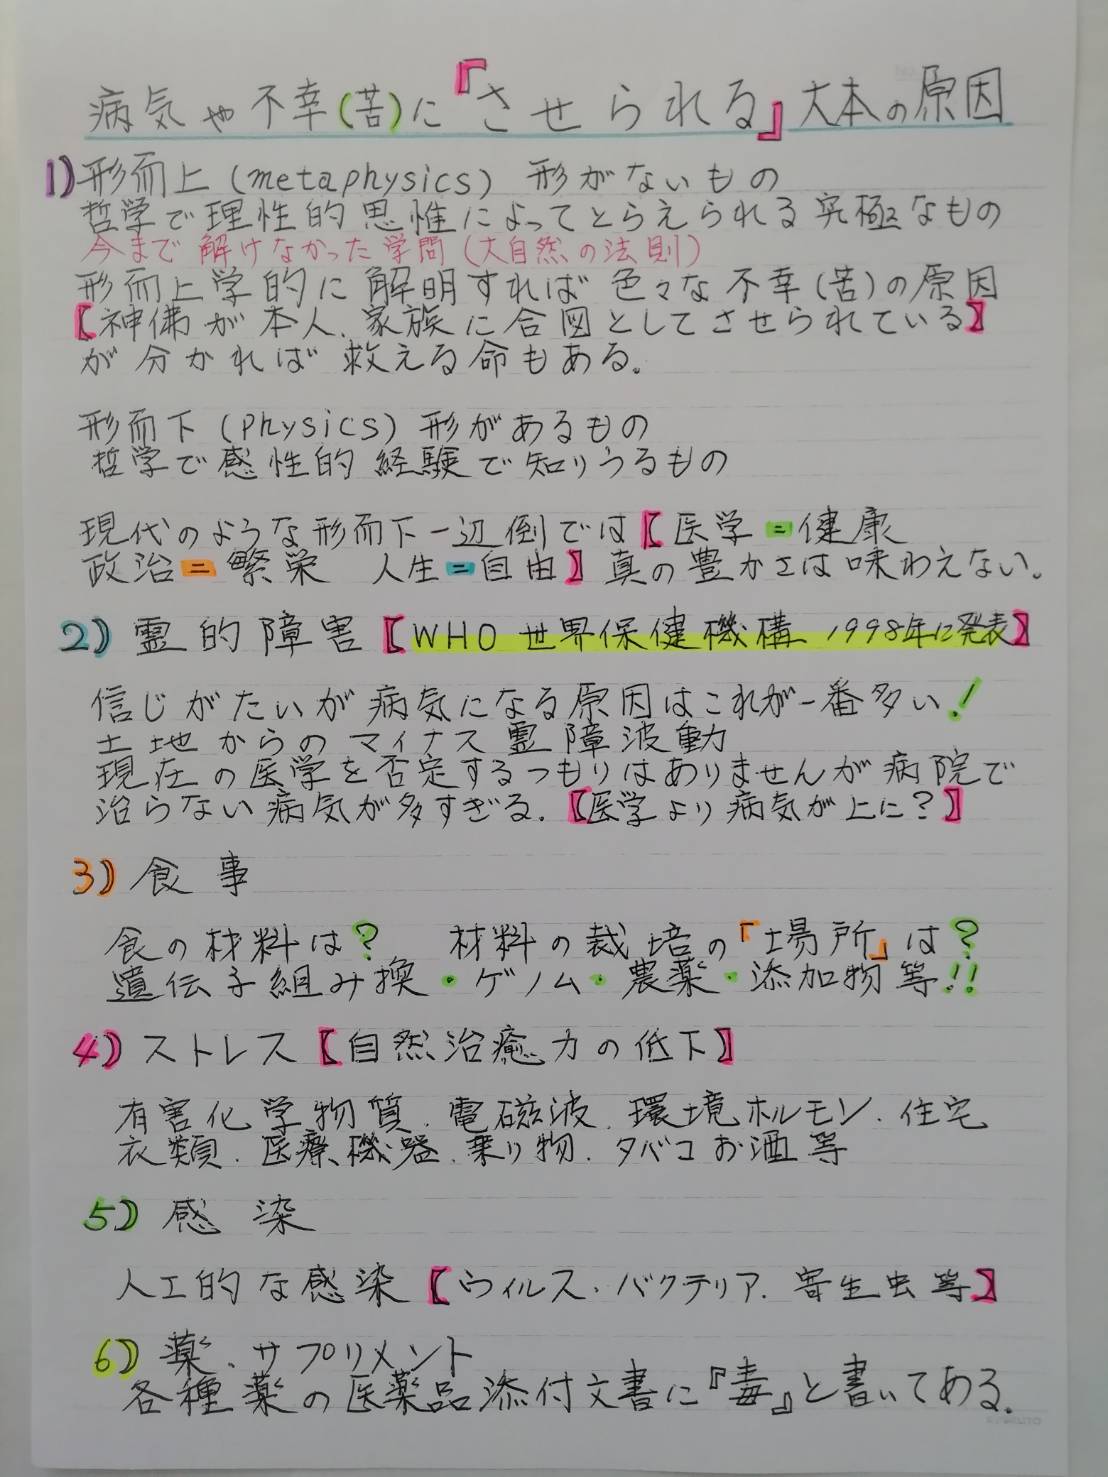 病気や不幸(苦)に『させられる』大本の原因
1)形而上(metaphysics) 形がないもの
哲学で理性的思惟によってとらえられる究極なもの
今まで解けなかった学問(大自然の法則)
形而上学的に解明すれば色々な不幸(苦)の原因
【神佛が本人、家族に合図としてさせられている】
が分かれば救える命もある。
形而下(physics)形があるもの
哲学で感性的経験で知りうるもの
現代のような形而下一辺倒では【医学=健康
政治=繁栄 人生=自由】真の豊かさは味わえない。
2)霊的障害【WHO世界保健機構 1998年に発表】
信じがたいが病気になる原因はこれが一番多い!
土地からのマイナス霊障波動
現在の医学を否定するつもりはありませんが病院で
治らない病気が多すぎる.【医学より病気が上に?】
3)食事
食の材料は? 材料の栽培の『場所』は?
遺伝子組み換・ゲノム・農薬・添加物等!!
4)ストレス【自然治癒力の低下】
有害化学物質.電磁波.環境ホルモン.住宅
衣類.医療機器.乗り物.タバコお酒等
5)感染
人工的な感染【ウィルス.バクテリア.寄生虫等】
6)薬、サプリメント
各種薬の医薬品添付文書に『毒』と書いてある.